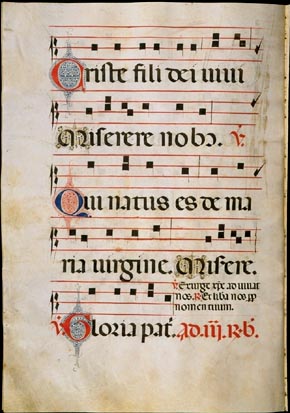 Criste fili dei uiui
Miserere nobꝫ. ℣.
Qui natus es de ma
ria uirgine. Misere.
℣. Exurge xp̄e adiuuat
nos. ℟. Et liba nos ꝓp
nomen tuum.
℣. Gloria pat̄. ad. iij. ℟. b̄.